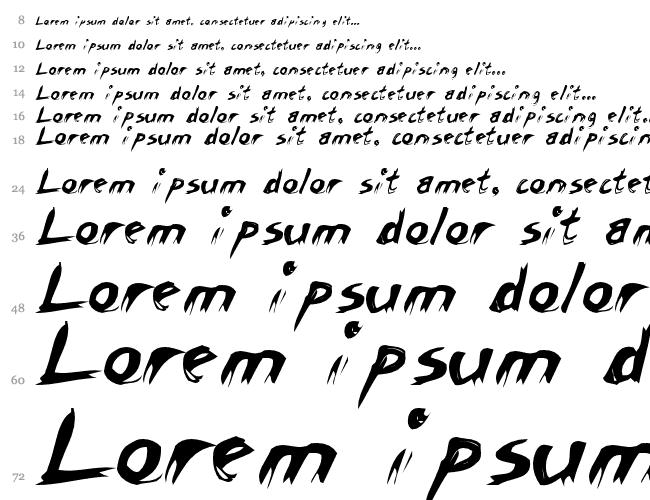 8 Lorem ipsum dolor sit amet, consectetuer adipiscing elit...
10 Lorem ipsum dolor sit amet, consectetuer adipiscing elit...
12 Lorem ipsum dolor sit amet, consectetuer adipiscing elit...
14 Lorem ipsum dolor sit amet, consectetuer adipiscing elit...
16 Lorem ipsum dolor sit amet, consectetuer adipiscing elit.
18 Lorem ipsum dolor sit amet, consectetuer adipiscin
24 Lorem ipsum dolor sit amet, consectet
36 Lorem ipsum dolor sit am
48 Lorem ipsum dolor
60 Lorem ipsum d
72 Lorem ipsum